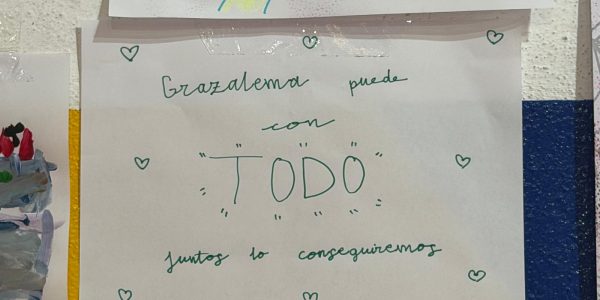 Grazalema puede
con
TODO
juntos lo conseguiremos